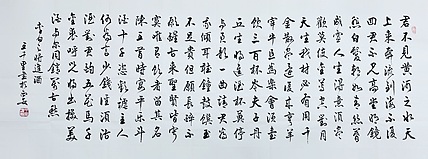 君不見黃河之水天
上來奔流到海不復
回君不見高堂明鏡
悲白髮朝如青絲暮
成雪人生得意須盡
歡莫使金樽空對月
天生我材必有用千
金散盡還復來烹羊
宰牛且為樂會須一
飲三百杯岑夫子丹
丘生將進酒杯莫停
與君歌一曲請君為
我傾耳聽鐘鼓饌玉
不足貴但願長醉不
願醒古來聖賢皆寂
寞惟有飲者留其名
陳王昔時宴平樂斗
酒十千恣歡謔主人
何為言少錢徑須沽
取對君酌五花馬千
金裘呼兒將出換美
酒與爾同銷萬古愁
李白之將進酒